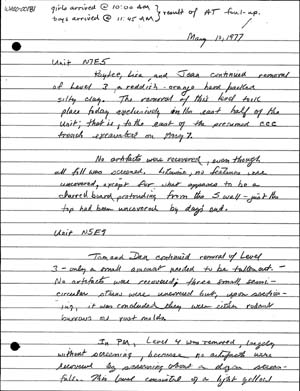 girls arrived @ 10:00 AM } result of AT foul-up.
boys arrived @ 11:45 AM
May 12, 1977
Unit N7E5
Kaylee, Lisa, and Joan continued removal
of Level 3, a reddish-orange hard packed
silty clay. The removal of this level took
place today exclusively in the east half of the
unit; that is, to the east of the presumed CCC
trench excavated on May 7.
No artifacts were recovered, even though
all fill was screened. Likewise, no features were
uncovered, except for what appears to be a
charred board protruding from the S wall - just the
top had been uncovered by day's end.
Unit N5E9
Tom and Dan continued removal of Level
3 - only a small amount needed to be taken out.
No artifacts were recovered; three small semi-
circular stains were uncovered but, upon section-
ing, it was concluded they were either rodent
burrows or root molds.
In PM, Level 4 was removed, largely
without screening, because no artifacts were
recovered by screening about a dozen screen-
fulls. This level consisted of a light yellow